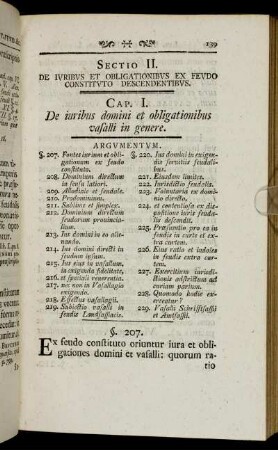 139
SECTIO II.
DE IVRIBUS ET OBLIGATIONIBUS EX FEUDO
CONSTITVTO DESCENDENTIBVS.
CAP. I.
De iuribus domini et obligationibus
vasalli in genere.
ARGVMENTVM.
§. 207. Fontes iurium et obli-
gationum ex feudo
constituto.
208. Dominium directum
in sensu latiori.
210. Allodiale et feudale.
Prodominium.
211. Sublime et simplex.
212. Dominium directum
feudorum provincia-
lium.
213. Ius domini in eo alie-
nando.
214. Ius domini directi in
feudum ipsum.
215. Ius eius in vasallum,
in exigenda fidelitate,
216. et speciatim
217. nec non in Vasallagio
exigendo.
218. Effectus vasallagii.
219. Subiectio vasalli in
feudis Landsassiacis.
§. 220. Ius domini in exigen-
dis servitiis feudali-
bus.
221. Eiusdem limites.
222. Iurisdictio feudalis.
223. Voluntaria ex domi-
nio directo.
224. et contentiosa ex dis-
positione iuris feuda-
lis descendit.
225. Praesumtio pro ea in
feudis in curte et ex-
tra curtem.
226. Eius ratio et indoles
in feudis extra cur-
tem.
227. Exercitium iurisdi-
ctionis adstrictum ad
curiam parium.
228. Quomodo hodie ex-
erceatur?
229. Vasalli Schriftsässii
et Amtsässii.
§. 207.
Ex feudo constituto oriuntur iura et obli-
gationes domini et vasalli: quorum ra-
tio